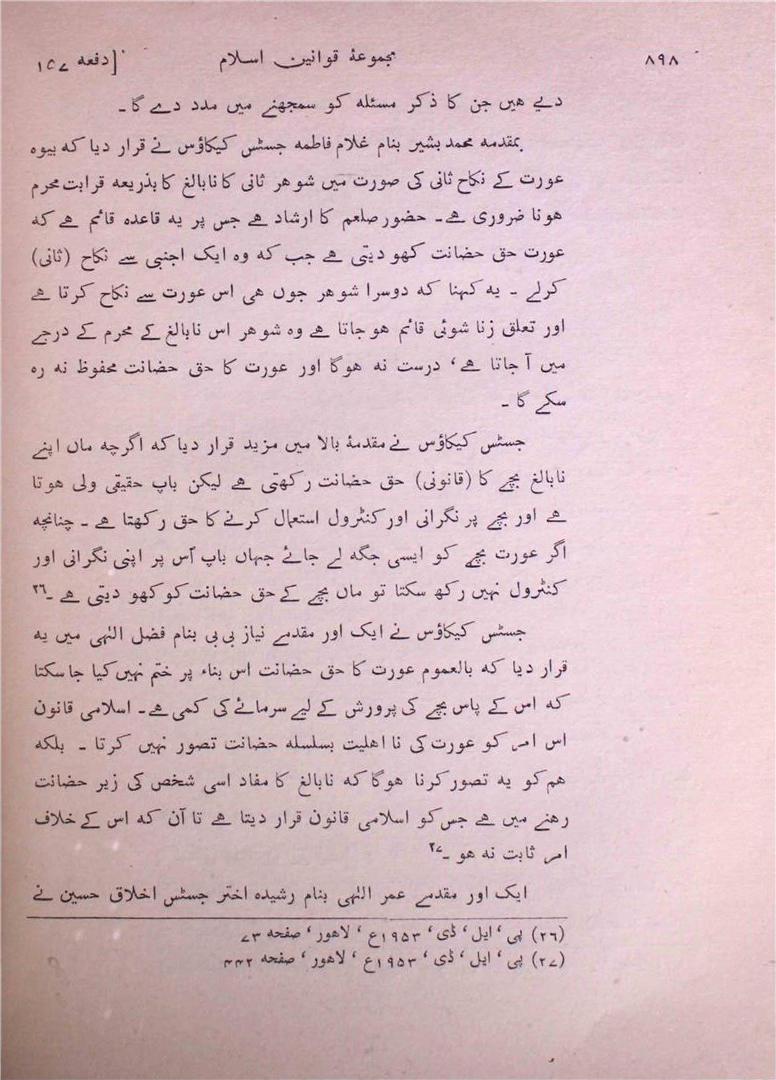 ۸۹۸ مجموعۂ قوانین اسلام [دفعہ ۱۵۷
دیے ہیں جن کا ذکر مسئلہ کو سمجھنے میں مدد دے گا۔
بمقدمہ محمد بشیر بنام غلام فاطمہ جسٹس کیکاؤس نے قرار دیا کہ بیوہ
عورت کے نکاح ثانی کی صورت میں شوہر ثانی کا نابالغ کا بذریعہ قرابت محرم
ہونا ضروری ہے۔ حضور صلعم کا ارشاد ہے جس پر یہ قاعدہ قائم ہے کہ
عورت حق حضانت کھو دیتی ہے جب کہ وہ ایک اجنبی سے نکاح (ثانی)
کرلے ۔ یہ کہنا کہ دوسرا شوہر جوں ہی اس عورت سے نکاح کرتا ہے
اور تعلق زنا شوئی قائم ہو جاتا ہے وہ شوہر اس نابالغ کے محرم کے درجے
میں آ جاتا ہے، درست نہ ہوگا اور عورت کا حق حضانت محفوظ نہ رہ
سکے گا ۔
جسٹس کیکاؤس نے مقدمۂ بالا میں مزید قرار دیا کہ اگرچہ ماں اپنے
نابالغ بچے کا (قانونی) حق حضانت رکھتی ہے لیکن باپ حقیقی ولی ہوتا
ہے اور بچے پر نگرانی اور کنٹرول استعمال کرنے کا حق رکھتا ہے ۔ چنانچہ
اگر عورت بچے کو ایسی جگہ لے جائے جہاں باپ اُس پر اپنی نگرانی اور
کنٹرول نہیں رکھ سکتا تو ماں بچے کے حق حضانت کو کھو دیتی ہے ۔۲۶
جسٹس کیکاؤس نے ایک اور مقدمے نیاز بی بی بنام فضل الٰہی میں یہ
قرار دیا کہ بالعموم عورت کا حق حضانت اس بناء پر ختم نہیں کیا جا سکتا
کہ اس کے پاس بچے کی پرورش کے لیے سرمائے کی کمی ہے۔ اسلامی قانون
اس امر کو عورت کی نا اہلیت بسلسلہ حضانت تصور نہیں کرتا ۔ بلکہ
ہم کو یہ تصور کرنا ہوگا کہ نابالغ کا مفاد اسی شخص کی زیر حضانت
رہنے میں ہے جس کو اسلامی قانون قرار دیتا ہے تا آن کہ اس کے خلاف
امر ثابت نہ ہو ۔۲۷
ایک اور مقدمے عمر الٰہی بنام رشیدہ اختر جسٹس اخلاق حسین نے
(۲۶) پی، ایل، ڈی، ۱۹۵۳ع، لاہور، صفحہ ۷۳
(۲۷) پی، ایل، ڈی، ۱۹۵۳ع، لاہور، صفحہ ۴۴۲